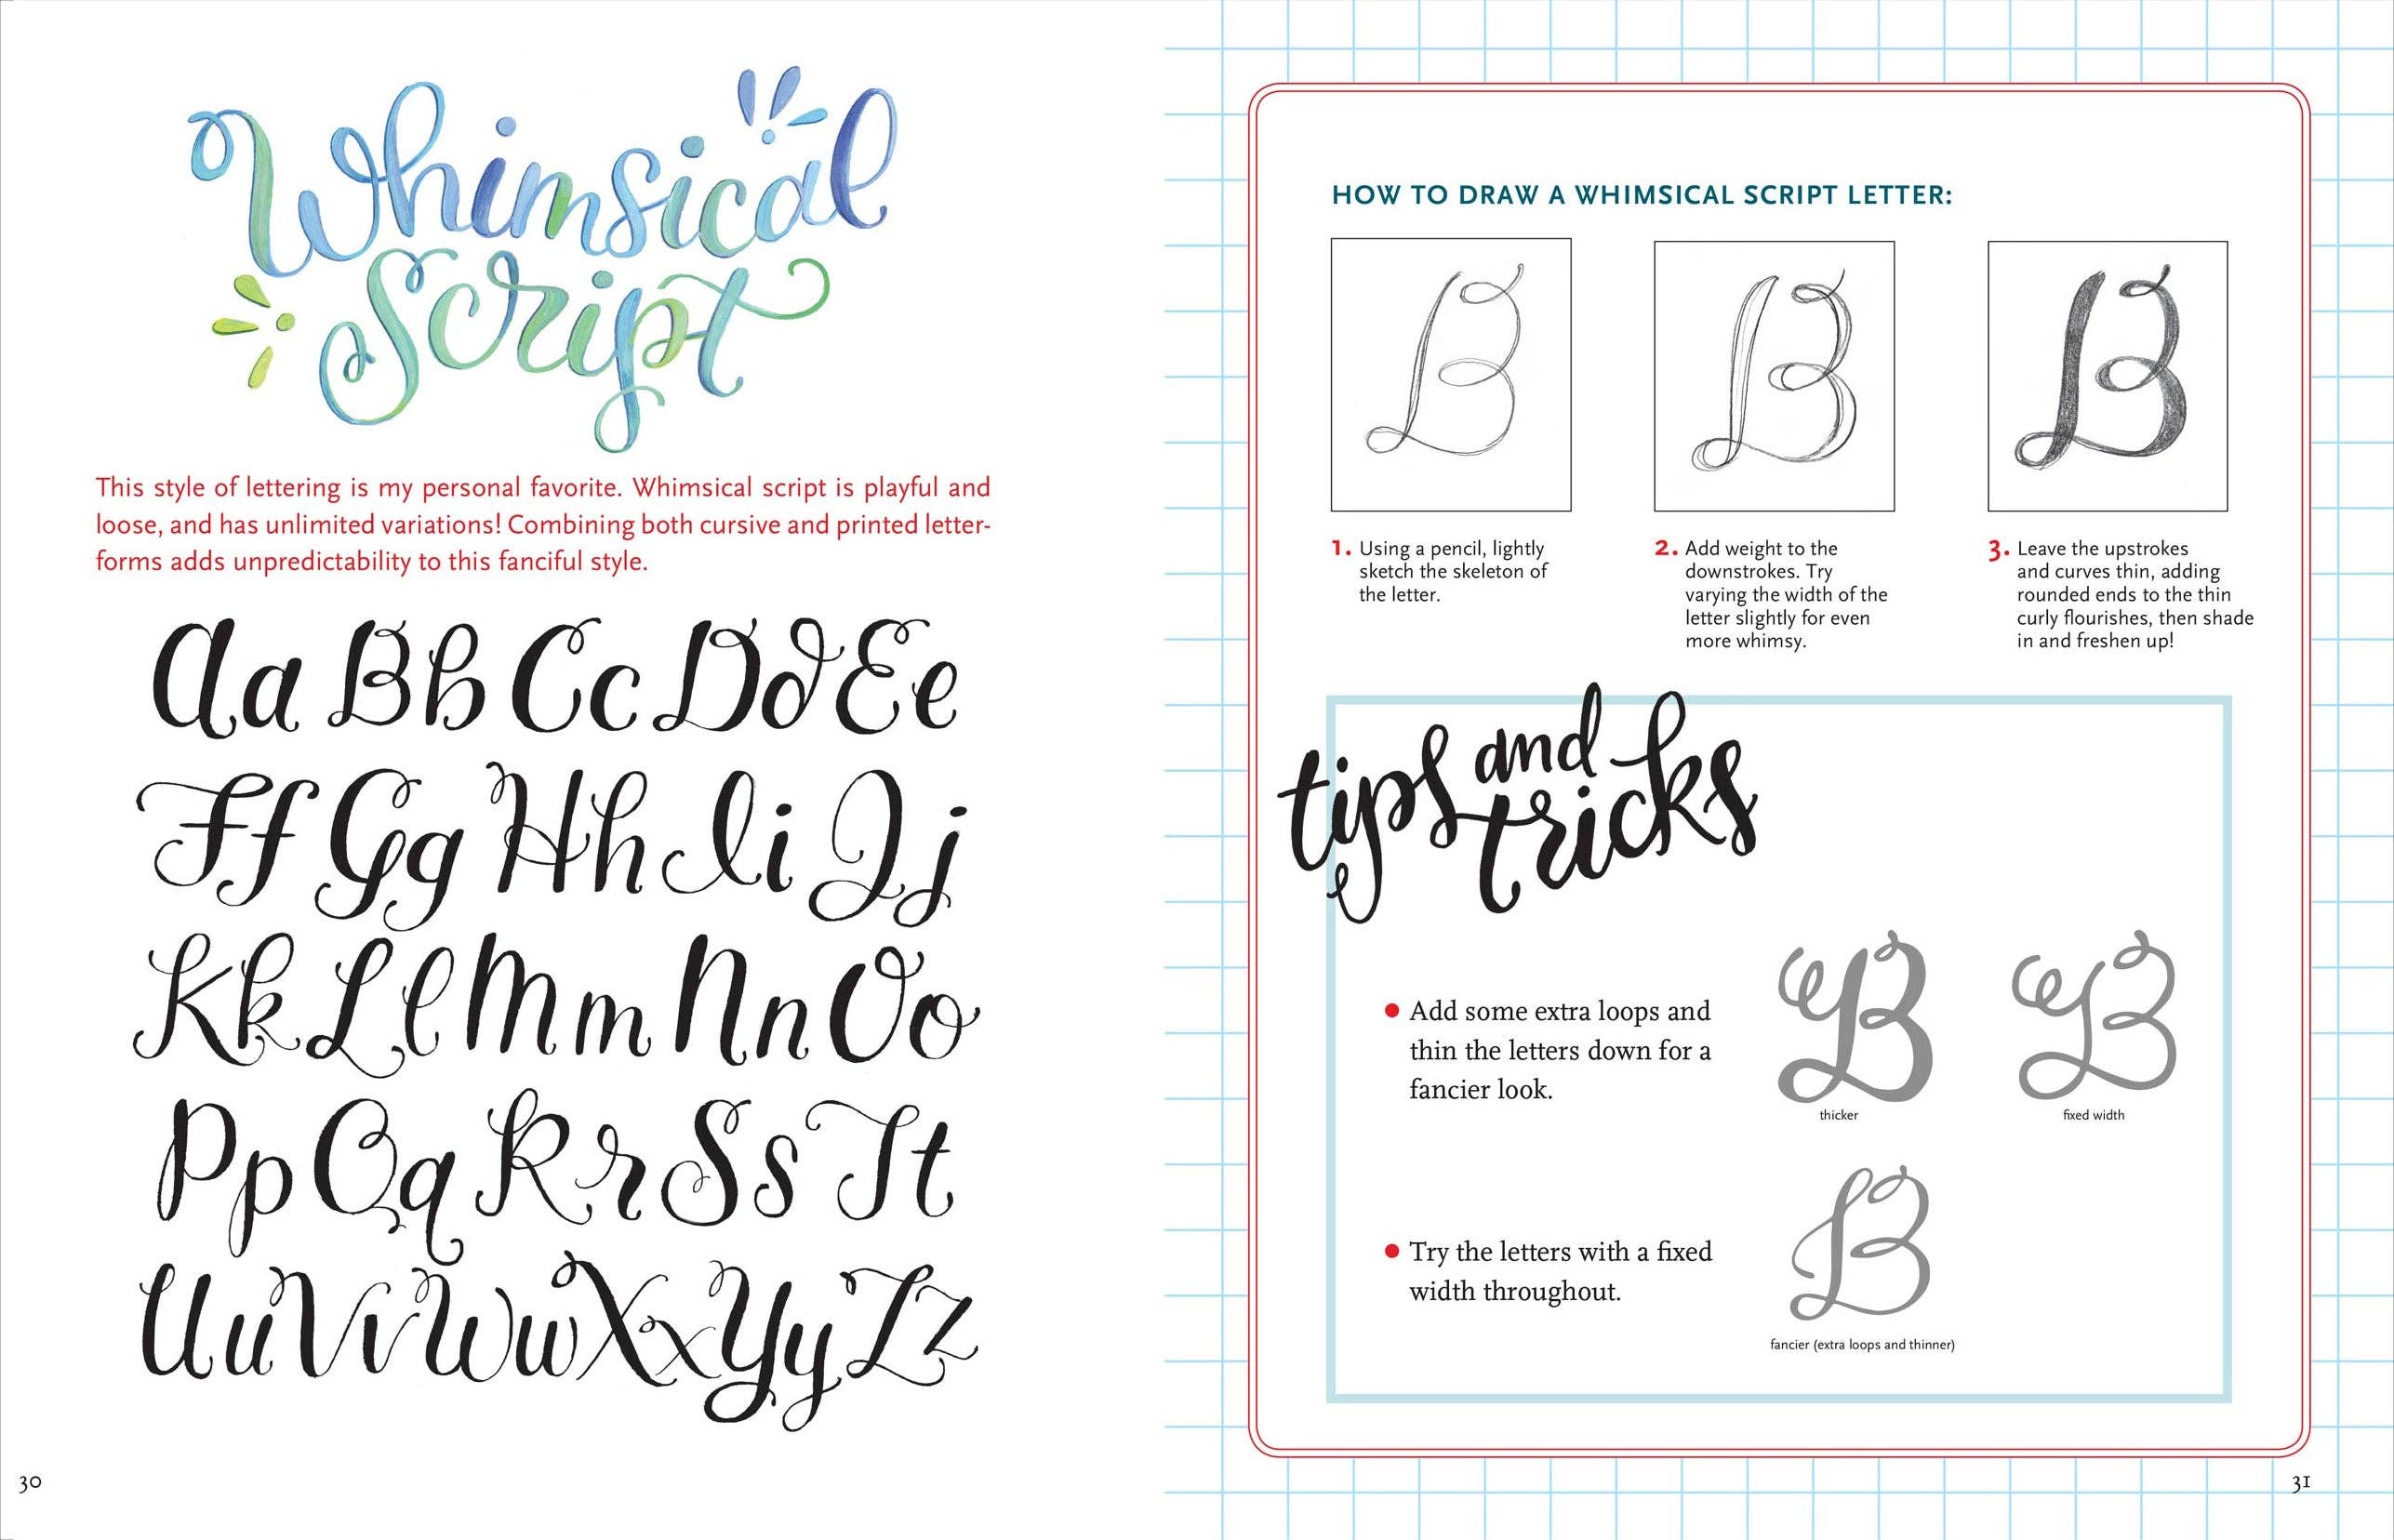 Whimsical
Script
This style of lettering is my personal favorite. Whimsical script is playful and
loose, and has unlimited variations! Combining both cursive and printed letter-
forms adds unpredictability to this fanciful style.
Aa Bb Cc Dd Ee
Ff Gg Hh Ii Jj
Kk Ll Mm Nn Oo
Pp Qq Rr Ss Tt
Uu Vv Ww Xx Yy Zz
30
HOW TO DRAW A WHIMSICAL SCRIPT LETTER:
B
B
B
1. Using a pencil, lightly
sketch the skeleton of
the letter.
2. Add weight to the
downstrokes. Try
varying the width of the
letter slightly for even
more whimsy.
3. Leave the upstrokes
and curves thin, adding
rounded ends to the thin
curly flourishes, then shade
in and freshen up!
tips and
tricks
• Add some extra loops and
thin the letters down for a
fancier look.
B
thicker
B
fixed width
• Try the letters with a fixed
width throughout.
B
fancier (extra loops and thinner)
31